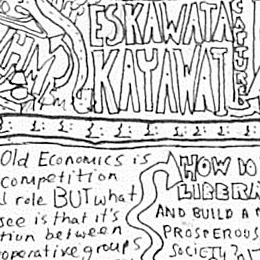 ESKAWATA
KAYAWAT
CAPTURED
Old Economics is
competition
role BUT what
see is that it's
tion between
operative groups
HOW DO
LIBERA
AND BUILD A
PROSPEROUS
SOCIETY?